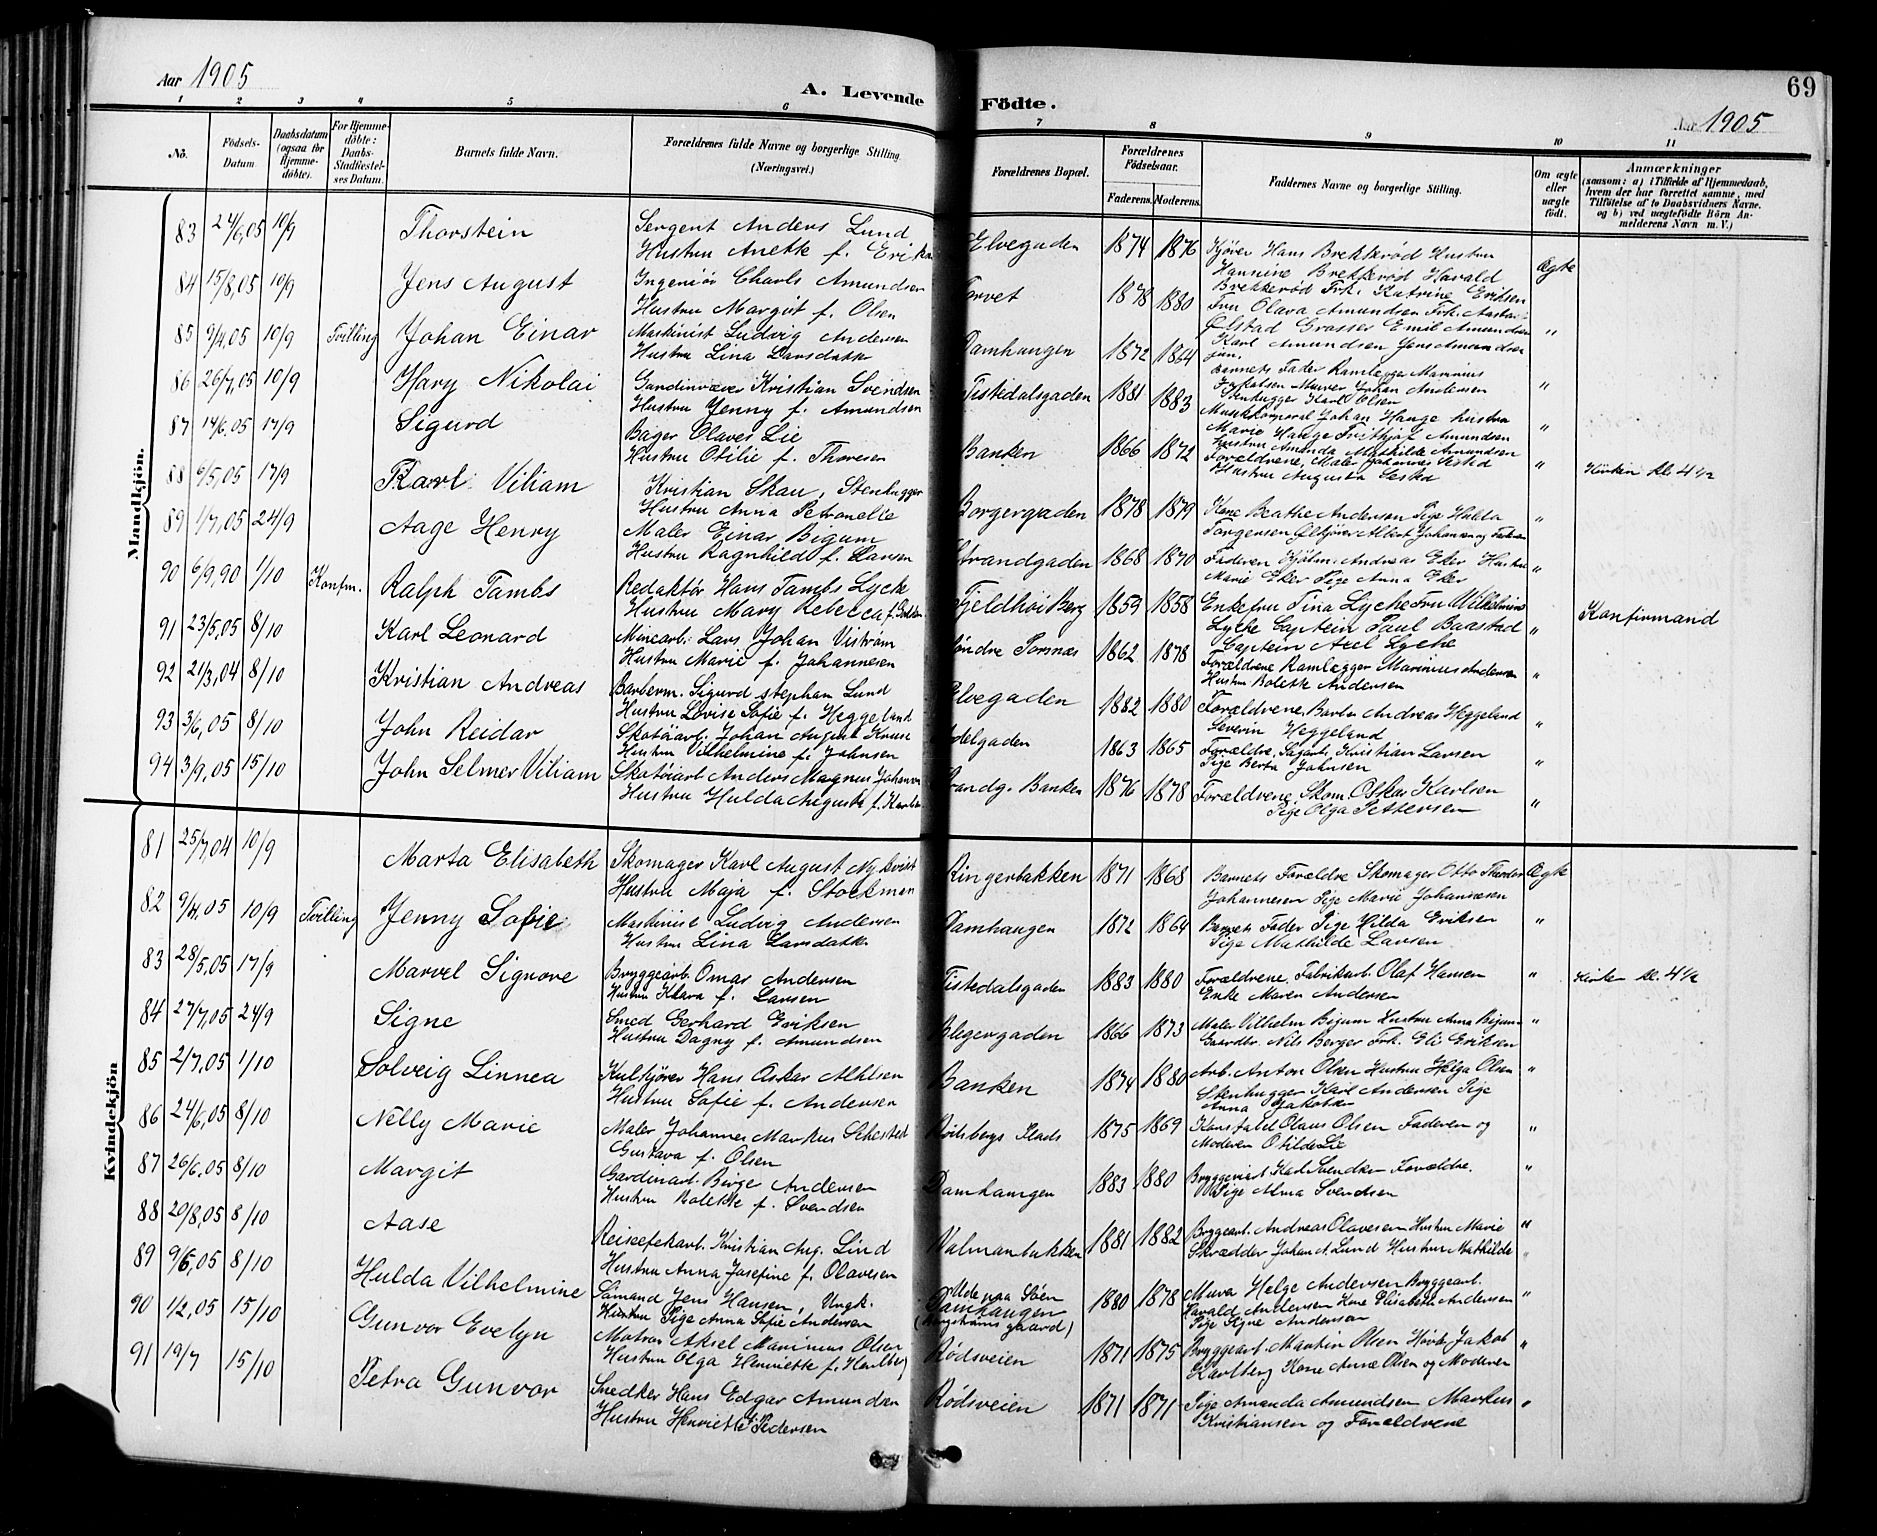 Aar 1905
A. Levende Födte.
69
Aar 1905
1 2 3 4 5 6 7 8 9 10 11
No.
Födsels-Datum.
Daabsdatum (ogsaa for Hjemmedöbte).
For Hjemmedöbte: Daabs-Stadfæstelses Datum.
Barnets fulde Navn.
Forældrenes fulde Navne og borgerlige Stilling (Næringsvei.)
Forældrenes Bopæl.
Forældrenes Födselsaar.
Faderens. Moderens.
Faddernes Navne og borgerlige Stilling.
Om ægte eller uægte födt.
Anmærkninger
(saasom: a) i Tilfælde af Hjemmedaab, hvem der har forrettet samme, med Tilföielse af to Daabsvidners Navne. og b) ved uægtefödte Börn Anmelderens Navn m. V.)
Mandkjön.
83 24/6,05 10/9 Thorstein Sergent Anders Lund Elvegaden 1874 1876 Kjører Hans Brekkerød Hustru
Hustru Anette f. Hannine Brekkerød Harald Ægte
84 15/8,05 10/9 Jens August Ingeniør Charls Amundsen Torvet 1878 1880 Brekkerød Frk. Katrine Eriksen
Hustru Margit f. Olsen Fru Olava Amundsen Frk.
85 9/4,05 10/9 Tvilling Johan Einar Maskinist Ludvig Andersen Damhaugen 1872 1864 Ølstad Grosser Emil Amundsen "
Hustru Lina Larsdatter Karl Amundsen Jens Amundsen jun.
86 26/7,05 10/9 Hary Nikolai Gardinvæver Kristian Svendsen Tistedalsgaden 1881 1883 Barnets Fader Ramlægger Marinius "
Hustru Jenny f. Amundsen Murer Johan Andersen Stenhugger Karl Olsen
87 14/6,05 17/9 Sigurd Bager Olaves Lie Banken 1866 1872 Musikkorporal Johan Hauge hustru "
Hustru Otilie f. Thoresen Marie Hauge Frithjof Amundsen
88 6/5,05 17/9 Karl Viliam Kristian Skau, Stenhugger Borgergaden 1878 1879 Hustru Amanda Mathilde Amundsen " Kirken kl. 4½
Hustru Anna Petronelle Forældrene, Maler Johannes Sested Hustru Augusta Sested
89 1/7,05 24/9 Aage Henry Maler Einar Bigum Strandgaden 1868 1870 Kone Beathe Andersen Pige Hulda "
Hustru Ragnhild f. Larsen Torgersen Albert Johansen og Faderen
90 6/9,90 1/10 Konfm. Ralph Tambs Redaktør Hans Tambs Lyche Fjeldhøi Berg 1859 1858 Faderen Andreas Eker Hustru "
Hustru Mary Rebecca f. Marie Eker Pige Anna Eker
91 23/5,05 8/10 Karl Leonard Minearb. Lars Johan Viström Söndre Torsnæs 1862 1878 Enkefru Tina Lyche Fru Wilhelmine Konfirmand
Hustru Marie f. Johannesen Lyche Captein Paul Baastad "
Captein Axel Lyche
92 21/3,04 8/10 Kristian Andreas Barberm. Sigurd Stephan Lund Elvegaden 1882 1880 Forældrene Ramlægger Marinius Andersen "
Hustru Lovise Sofie f. Heggeland Hustru Bolette Andersen
93 3/6,05 8/10 John Reidar Skotøiarb. Johan August Adelgaden 1863 1865 Forældrene, Barber Andreas Heggeland "
Hustru Vilhelmine f. Johnsen Severin Heggeland
94 3/9,05 15/10 John Selmer Viliam Skotøiarb Anders Magnus Johansen Strandg. Banken 1876 1878 Forældre, Sagarb. Kristian Larsen "
Hustru Hulda Auguste f. Pige Berta Johnsen
Forældrene, Skom. Oskar Karlsen "
Pige Olga Pettersen
Kvindekjön
81 25/7,04 10/9 Marta Elisabeth Skomager Karl August Nykvist Ringerbakken 1871 1868 Barnets Forældre Skomager Otto Theodor Ægte
Hustru Maja f. Stockman Johannesen Pige Marie Johannesen
82 9/4,05 10/9 Tvilling Jenny Sofie Maskinist Ludvig Andersen Damhaugen 1872 1864 Barnets Fader Pige Hilda Eriksen "
Hustru Lina Larsdatter Pige Mathilde Larsen
83 28/5,05 17/9 Marvel Signore Bryggearb Omar Andersen Tistedalsgaden 1883 1880 Forældrene, Fabrikarb. Olaf Hansen " Kirken kl. 4½
Hustru Klara f. Larsen Enke Maren Andersen
84 27/7,05 24/9 Signe Smed Gerhard Eriksen Blegergaden 1866 1873 Maler Vilhelm Bigum Hustru Anna Bigum "
Hustru Dagny f. Amundsen Gaardbr. Nils Berger Frk. Eli Eriksen
85 2/7,05 1/10 Solveig Linnea Kulkjører Hans Oskar Alhlsen Banken 1874 1880 Arb. Anton Olsen Hustru Helga Olsen "
Hustru Sofie f. Andersen Stenhugger Karl Andersen Pige Anna Jakobsen
86 24/6,05 8/10 Nelly Marie Maler Johannes Markus Sehested Rødsbergs Plads 1875 1869 Olaus Olsen Faderen og "
Gustava f. Olsen Moderen Otilde Lie
87 26/6,05 8/10 Margit Gardinarb. Birge Andersen Damhaugen 1883 1880 Bryggeriarb. Karl Svendsen Forældre. "
Hustru Bolette f. Svendsen Pige Alma Svendsen
88 20/8,05 8/10 Aase Reiseefekarb. Kristian Aug. Lind Valmanbakken 1881 1882 Bryggearb. Andreas Olavesen Hustru Marie "
Hustru Anna Josefine f. Olavesen Skrædder Johan A. Lund Hustru Mathilde "
89 9/6,05 8/10 Hulda Vilhelmine Sömand Jens Hansen, Ungk. Ude paa Søen Damhaugen 1880 1878 Murer Helge Andersen Bryggearb. "
Pige Anna Sofie Andersen (Bergströms gaard) Harald Andersen Kone Elisabeth Andersen
90 1/2,05 15/10 Gunvor Evelyn Matros Aksel Marinius Olsen Rødsveien 1871 1875 Bryggearb. Martin Olsen Jakob "
Hustru Olga Henriette f. Karlberg Karlberg Kone Anne Olsen og Moderen
91 19/7 15/10 Petra Gunvor Snedker Hans Edgar Amundsen Rødsveien 1871 1871 Pige Amanda Amundsen Markus "
Hustru Henriette f. Pedersen Kristiansen og Forældrene